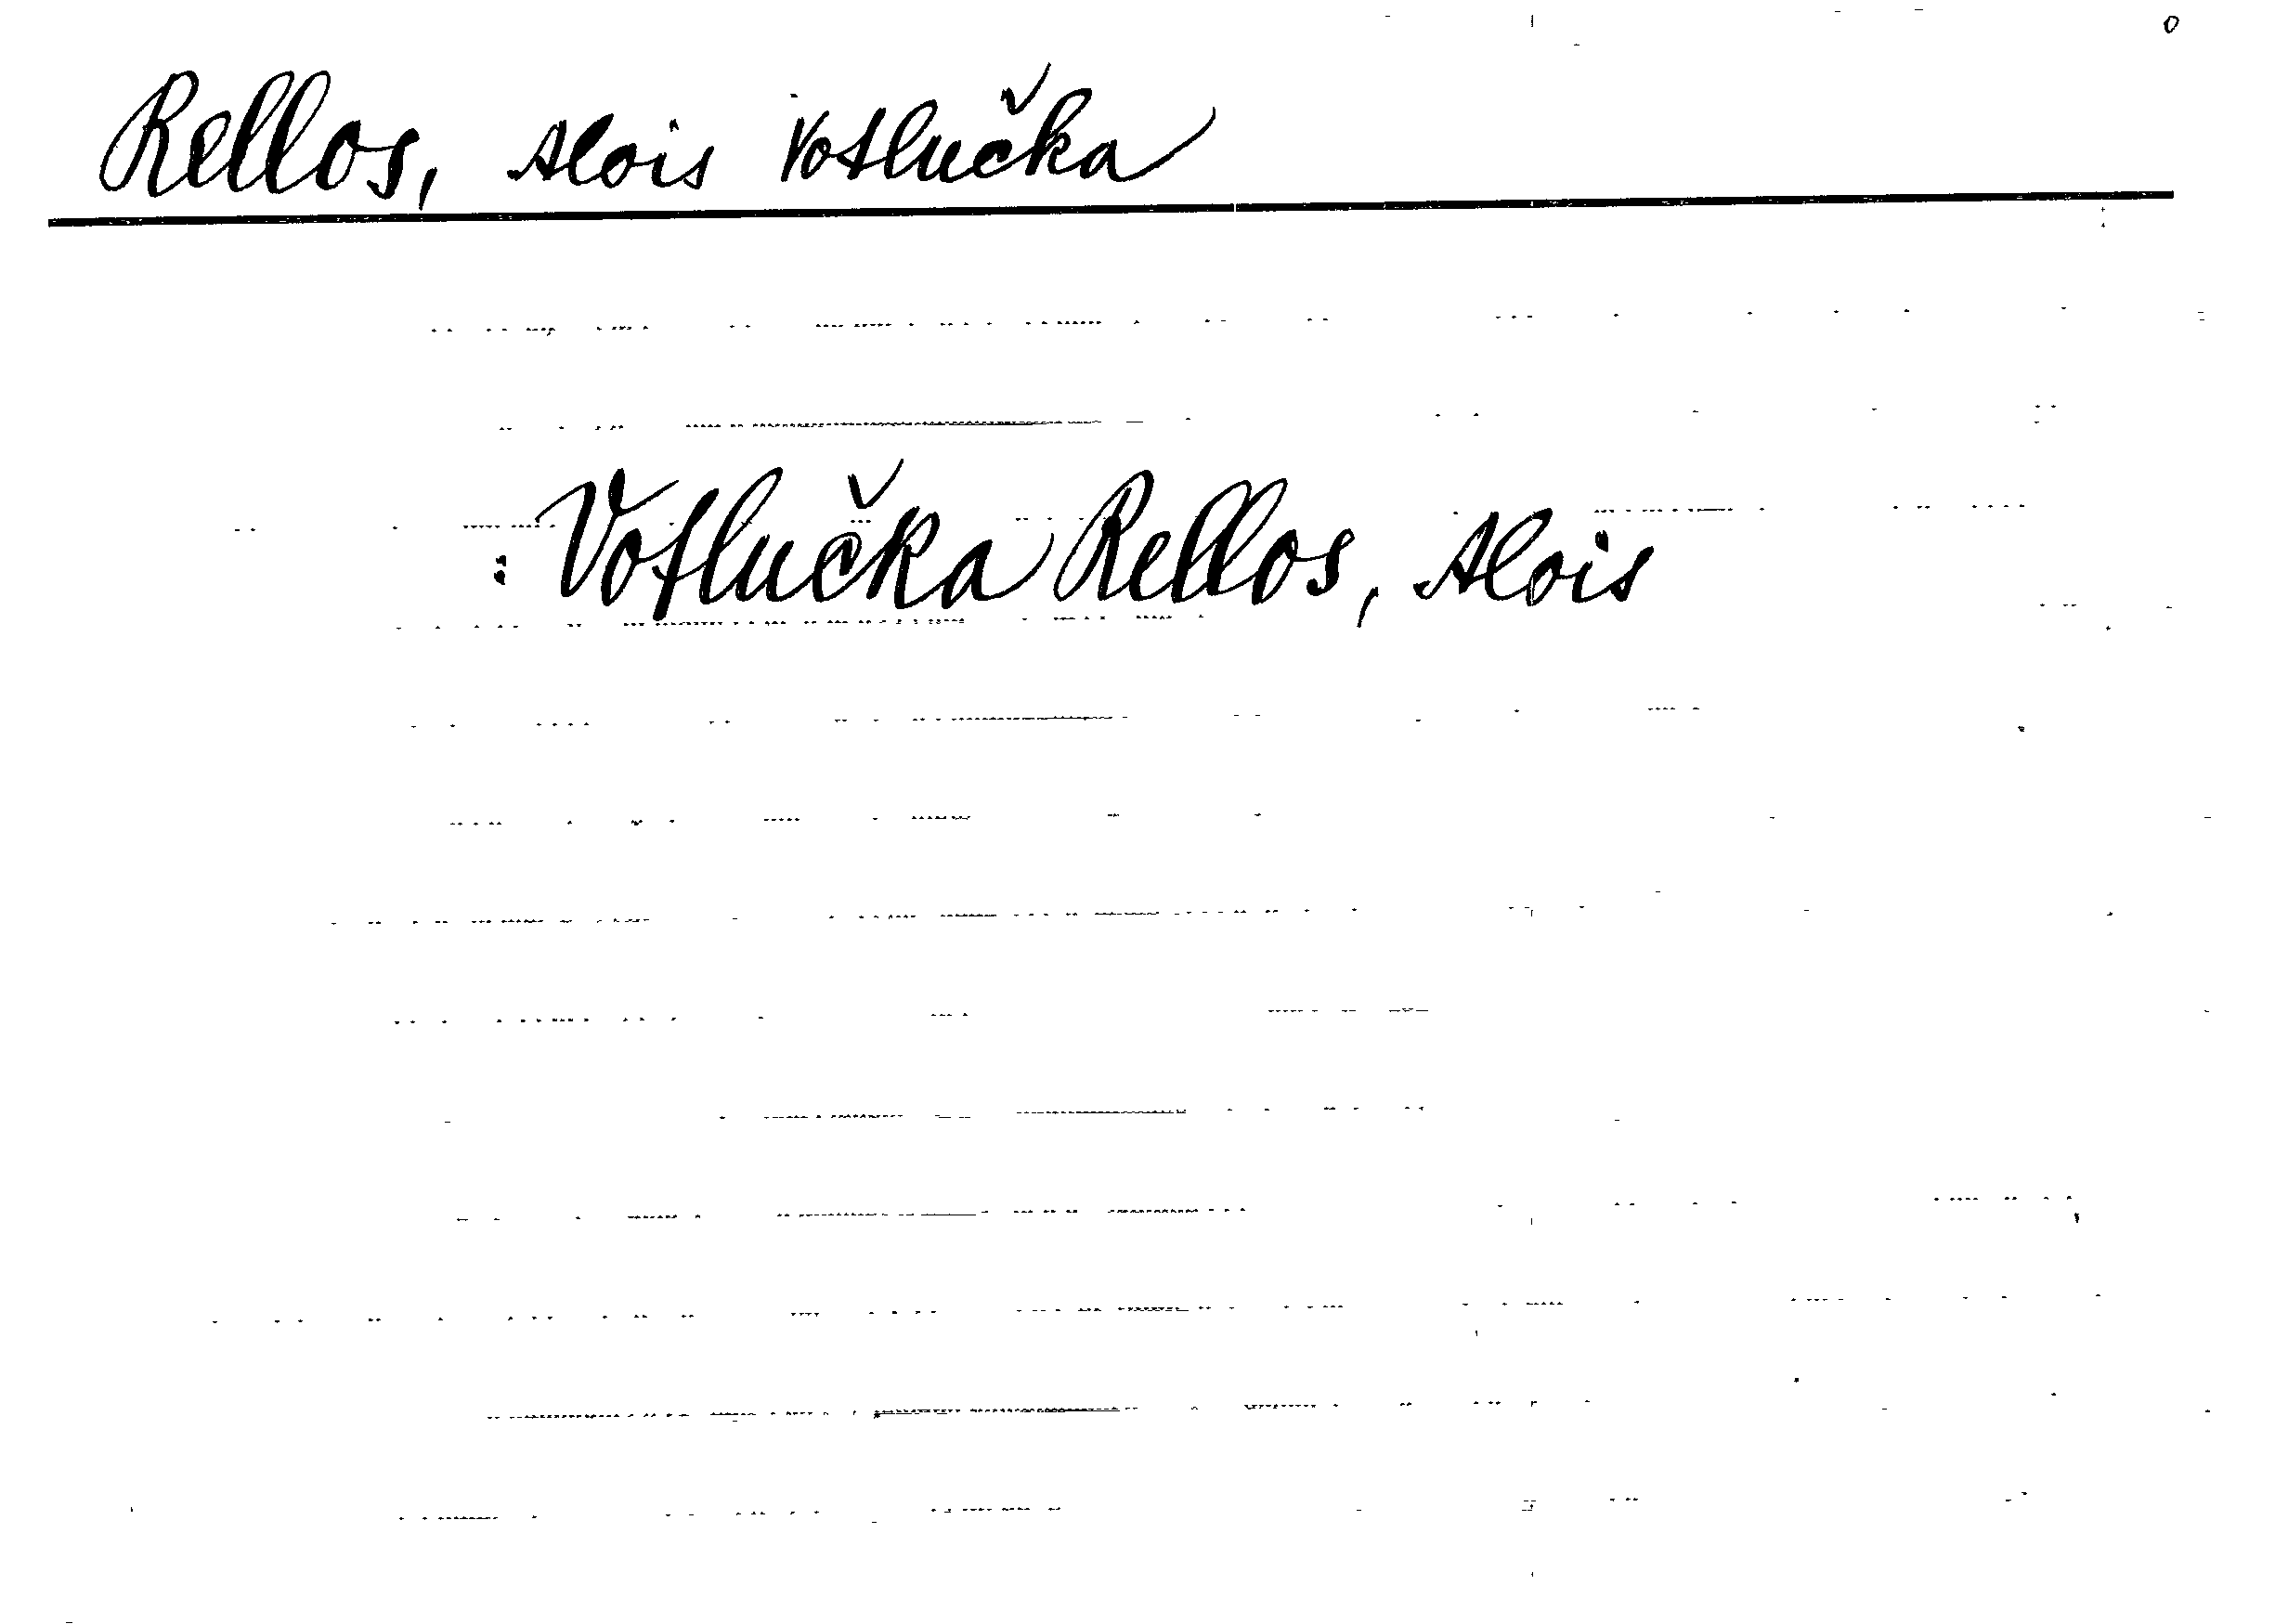 Rellos, Alois Votlučka
: Votlučka Rellos, Alois